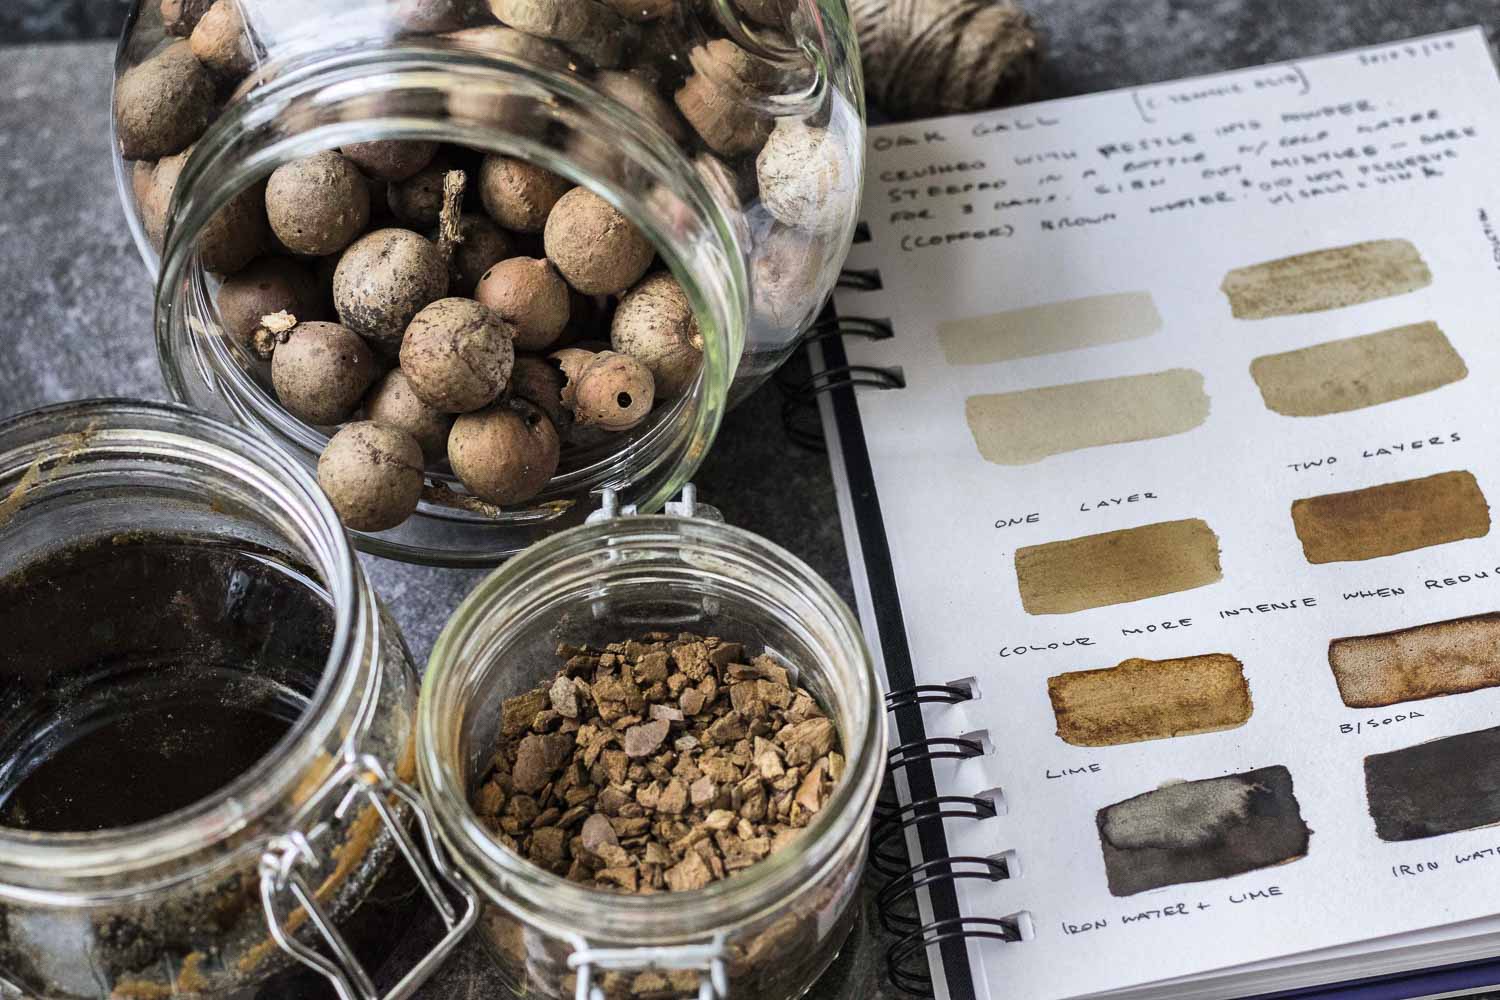 [C. TANNIC ACID]
OAK GALL
CRUSHED WITH PESTLE INTO POWDER.
STEEPED IN A BOTTLE W/ COLD WATER
FOR 3 DAYS. MIXTURE - DARK
(COFFEE) BROWN WATER. DID NOT PRESERVE
ONE LAYER
TWO LAYERS
COLOUR MORE INTENSE WHEN REDUC
LIME
B/SODA
IRON WATER + LIME
IRON WATE